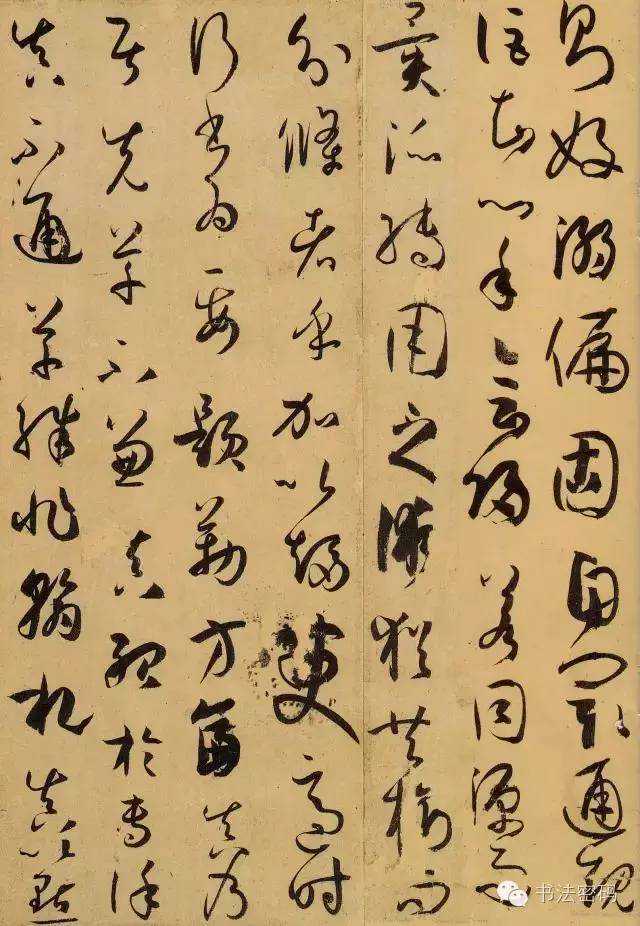 則好溺偏固自閡通規
詎知心手會歸若同源而
異派轉用之術猶共樹而
分條者乎加以趨變適時
行書為要題勒方畐真乃
居先草不兼真殆於專謹
真不通草殊非翰札真以點
书法密码